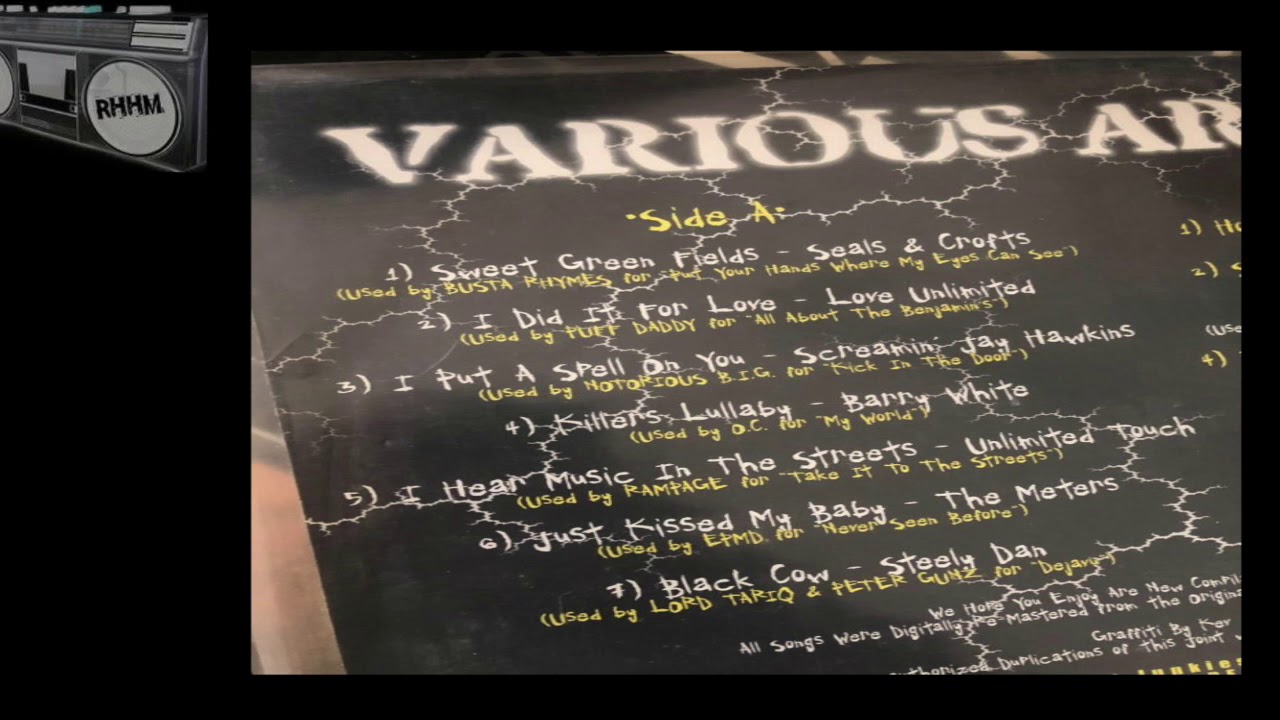 RHHM
VARIOUS AR
·Side A·
1) Sweet Green Fields - Seals & Crofts
(Used by BUSTA RHYMES for "Put Your Hands Where My Eyes Can See")
2) I Did It For Love - Love Unlimited
(Used by PUFF DADDY for "All About The Benjamin's")
3) I Put A Spell On You - Screamin' Jay Hawkins
(Used by NOTORIOUS B.I.G. for "Kick In The Door")
4) Killer's Lullaby - Barry White
(Used by O.C. for "My World")
5) I Hear Music In The Streets - Unlimited Touch
(Used by RAMPAGE for "Take It To The Streets")
6) Just Kissed My Baby - The Meters
(Used by EPMD for "Never Seen Before")
7) Black Cow - Steely Dan
(Used by LORD TARIQ & PETER GUNZ for "Dejavu")
We Hope You Enjoy Are New Compil
All Songs Were Digitally Re-Mastered From The Origina
Graffiti By Kev
uthorized Duplications of This Joint
1) Ho
2) S
(Use
4)